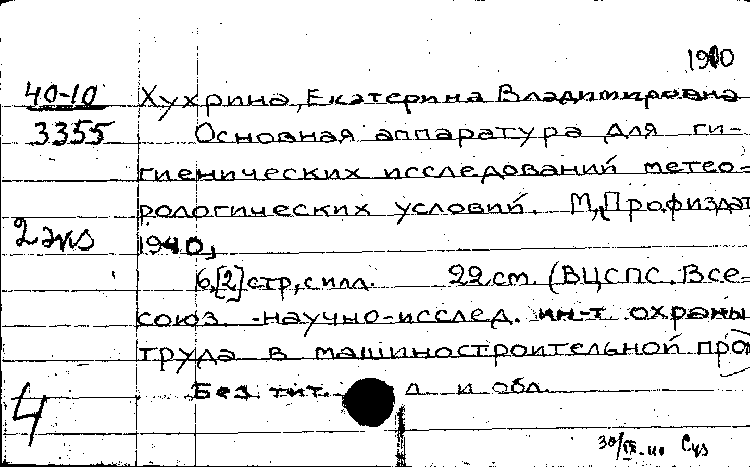 1910
40-10 Хухрина, Екатерина Владимировна
3355 Основная аппаратура для ги-
гиенических исследований метео-
рологических условий. М, Профиздат
2 экз 1940,
6,[2] стр, с илл. 22 см. (ВЦСПС. Все-
союз. -научно-исслед. ин-т охраны
труда в машиностроительной про
Без тит. л и обл.
4
30/IX-40